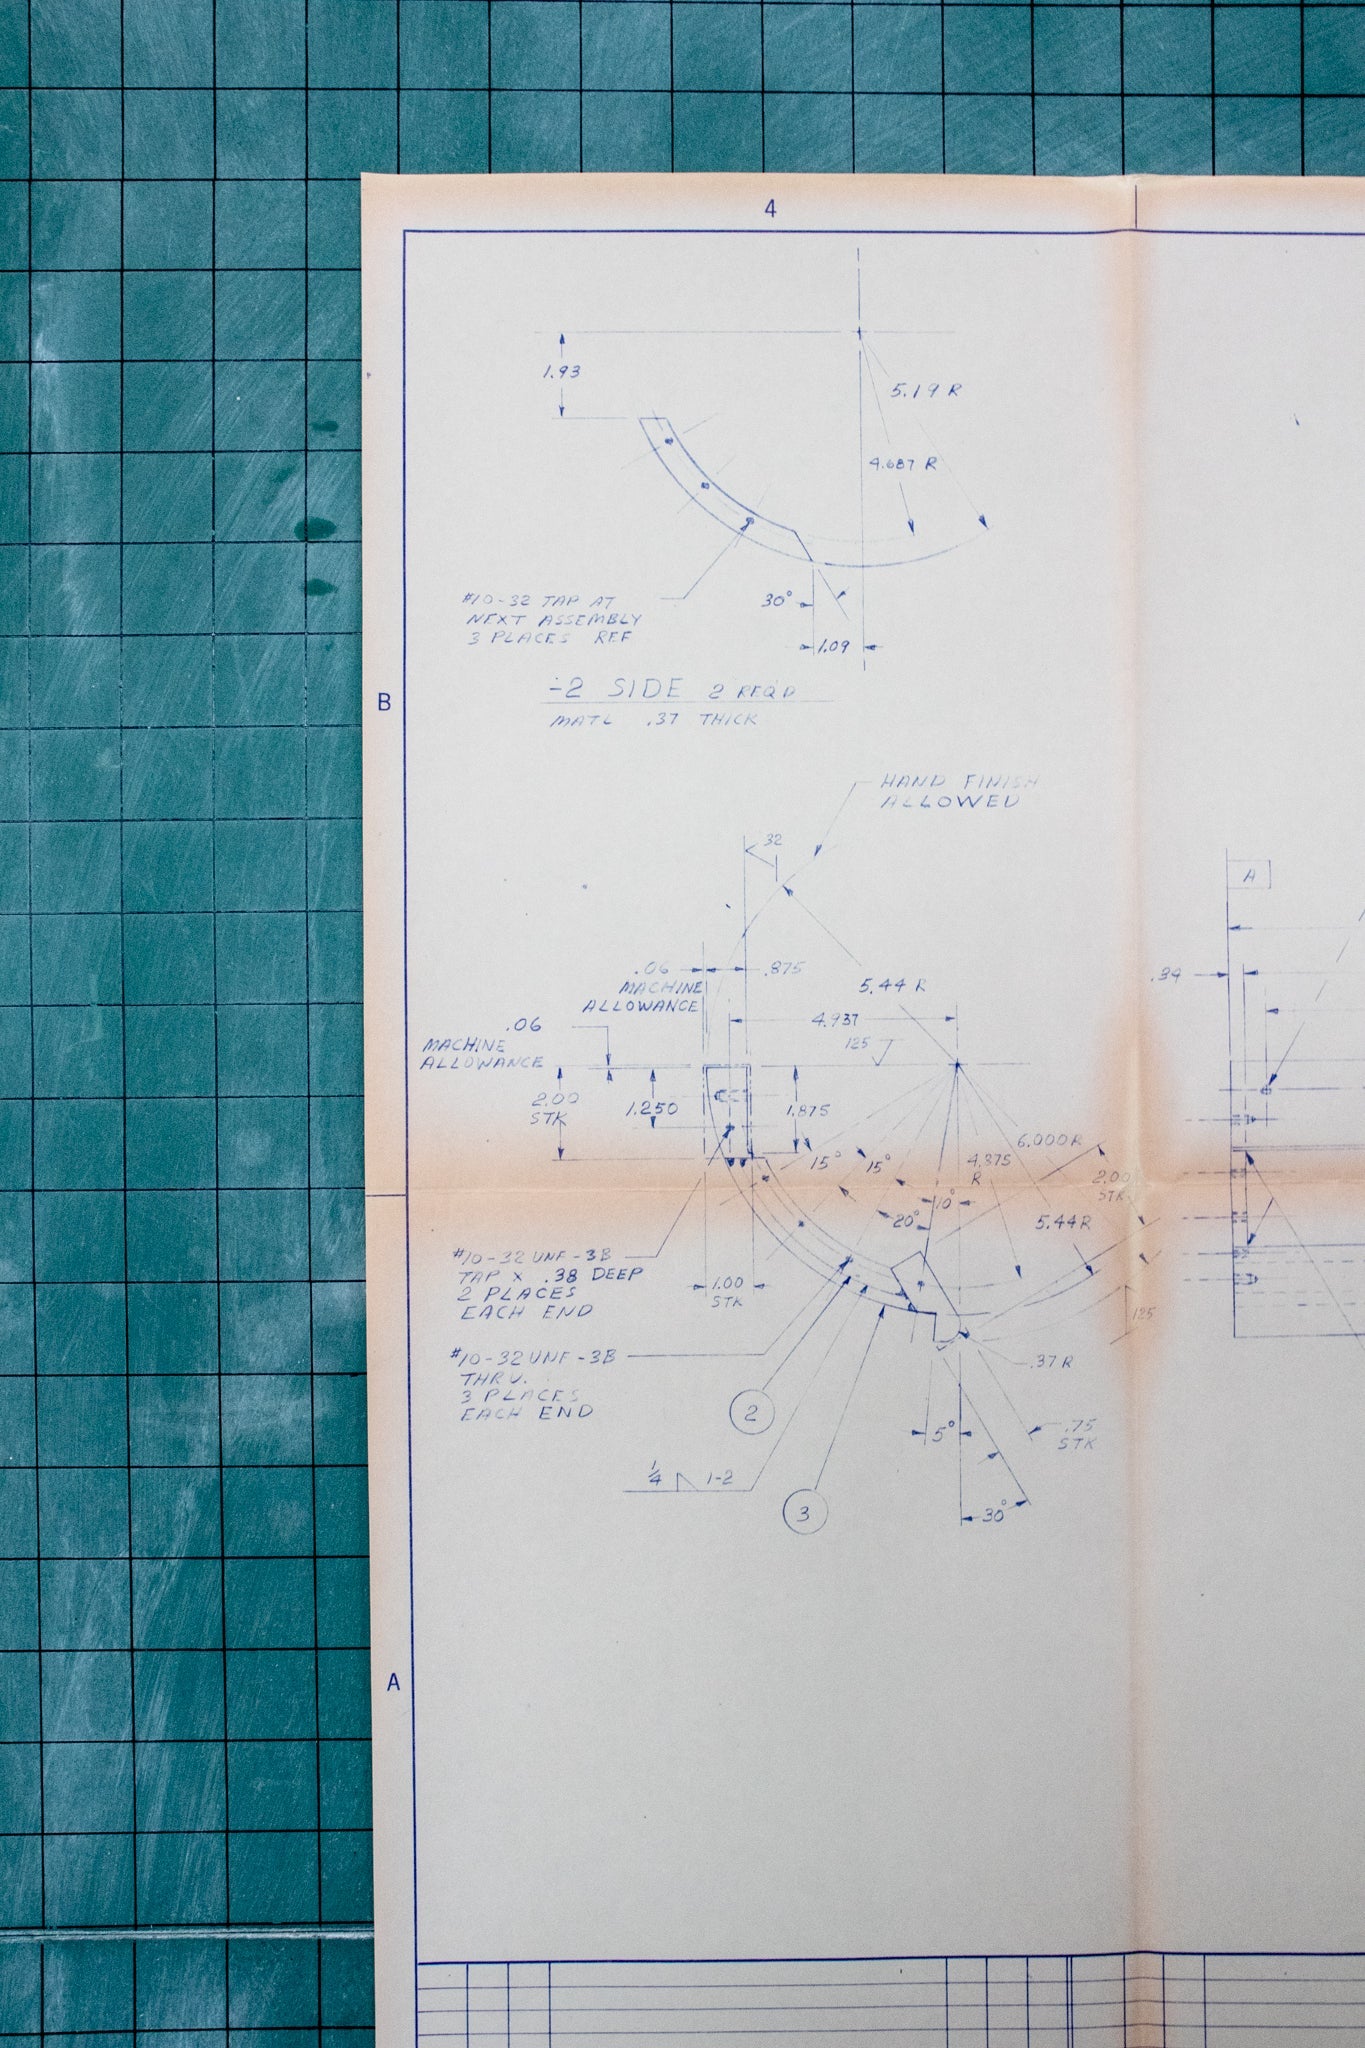 4
1.93
5.19 R
4.687 R
#10-32 TAP AT
NEXT ASSEMBLY
3 PLACES REF
30°
1.09
-2 SIDE 2 REQD
MATL .37 THICK
B
HAND FINISH
ALLOWED
32
A
.06
MACHINE
ALLOWANCE
.875
5.44 R
4.937
125
.06
MACHINE
ALLOWANCE
2.00
STK
1.250
1.875
15°
15°
10°
20°
6.000 R
4.375
R
2.00
STK
5.44 R
#10-32 UNF-3B
TAP X .38 DEEP
2 PLACES
EACH END
1.00
STK
125
#10-32 UNF-3B
THRU.
3 PLACES
EACH END
.37 R
2
5°
.75
STK
1/4 1-2
3
30°
A